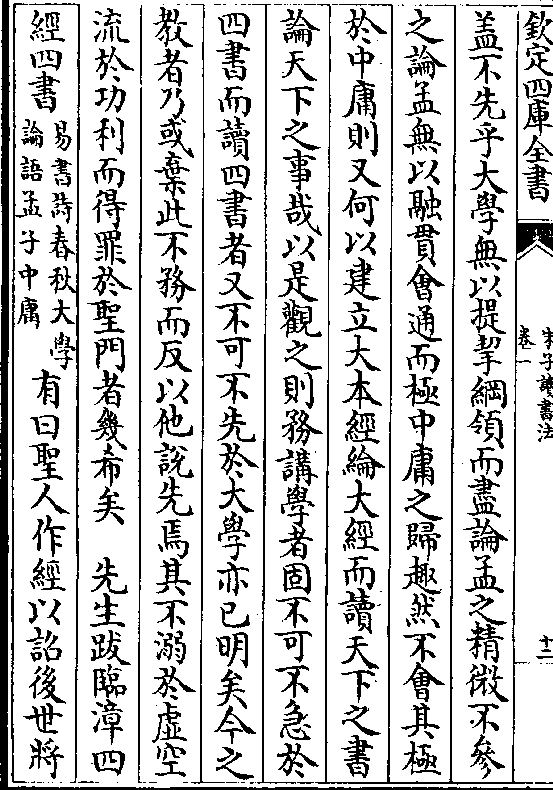 欽定四庫全書
朱子讀書法
卷一
十二
盖不先乎大學無以提挈綱領而盡論孟之精微不參
之論孟無以融貫會通而極中庸之歸趣然不會其極
於中庸則又何以建立大本經綸大經而讀天下之書
論天下之事哉以是觀之則務講學者固不可不急於
四書而讀四書者又不可不先於大學亦已明矣今之
教者乃或棄此不務而反以他說先焉其不溺於虛空
流於功利而得罪於聖門者幾希矣　先生跋臨漳四
經四書
易書詩春秋大學
論語孟子中庸
有曰聖人作經以詔後世將